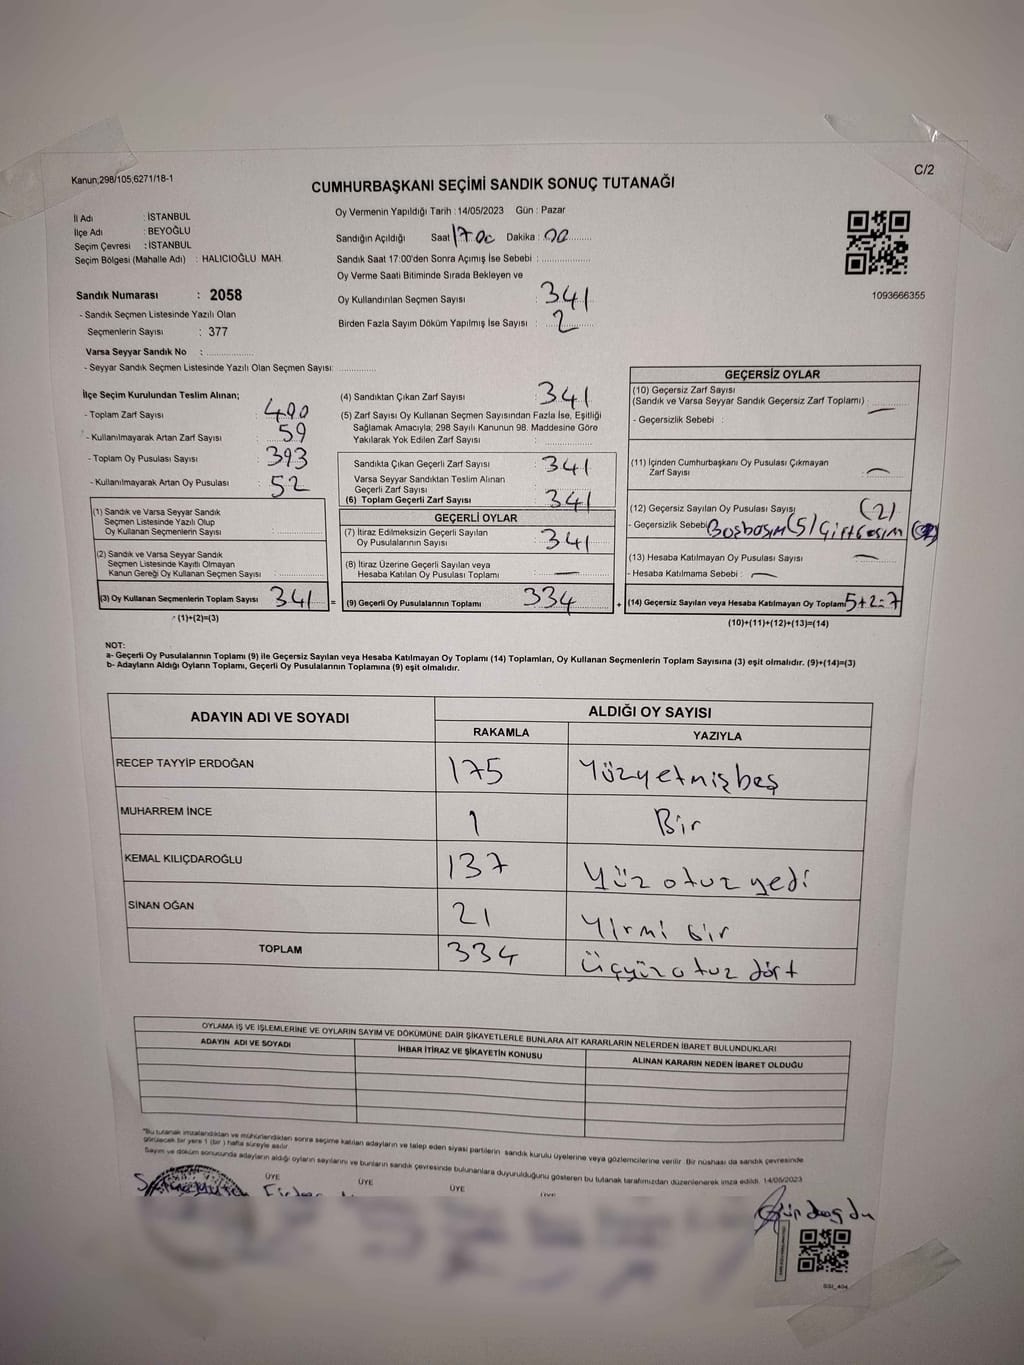 Kanun;298/105,6271/18-1
C/2
CUMHURBAŞKANI SEÇİMİ SANDIK SONUÇ TUTANAĞI
İl Adı : İSTANBUL
İlçe Adı : BEYOĞLU
Seçim Çevresi : İSTANBUL
Seçim Bölgesi (Mahalle Adı) : HALICIOĞLU MAH.
Sandık Numarası : 2058
- Sandık Seçmen Listesinde Yazılı Olan
Seçmenlerin Sayısı : 377
Varsa Seyyar Sandık No : ................
- Seyyar Sandık Seçmen Listesinde Yazılı Olan Seçmen Sayısı: ............
Oy Vermenin Yapıldığı Tarih : 14/05/2023 Gün : Pazar
Sandığın Açıldığı Saat 17 00 Dakika : 00
Sandık Saat 17:00'den Sonra Açımış İse Sebebi : ................
Oy Verme Saati Bitiminde Sırada Bekleyen ve
Oy Kullandırılan Seçmen Sayısı : 341
Birden Fazla Sayım Döküm Yapılmış İse Sayısı : 2
1093666355
İlçe Seçim Kurulundan Teslim Alınan;
- Toplam Zarf Sayısı : 400
- Kullanılmayarak Artan Zarf Sayısı : 59
- Toplam Oy Pusulası Sayısı : 393
- Kullanılmayarak Artan Oy Pusulası : 52
(1) Sandık ve Varsa Seyyar Sandık
Seçmen Listesinde Yazılı Olup
Oy Kullanan Seçmenlerin Sayısı :
(2) Sandık ve Varsa Seyyar Sandık
Seçmen Listesinde Kayıtlı Olmayan
Kanun Gereği Oy Kullanan Seçmen Sayısı :
(3) Oy Kullanan Seçmenlerin Toplam Sayısı 341 =
(1)+(2)=(3)
(4) Sandıktan Çıkan Zarf Sayısı : 341
(5) Zarf Sayısı Oy Kullanan Seçmen Sayısından Fazla İse, Eşitliği
Sağlamak Amacıyla; 298 Sayılı Kanunun 98. Maddesine Göre
Yakılarak Yok Edilen Zarf Sayısı :
Sandıkta Çıkan Geçerli Zarf Sayısı : 341
Varsa Seyyar Sandıktan Teslim Alınan
Geçerli Zarf Sayısı :
(6) Toplam Geçerli Zarf Sayısı : 341
GEÇERLİ OYLAR
(7) İtiraz Edilmeksizin Geçerli Sayılan
Oy Pusulalarının Sayısı : 341
(8) İtiraz Üzerine Geçerli Sayılan veya
Hesaba Katılan Oy Pusulası Toplamı : —
(9) Geçerli Oy Pusulalarının Toplamı 334 +
GEÇERSİZ OYLAR
(10) Geçersiz Zarf Sayısı
(Sandık ve Varsa Seyyar Sandık Geçersiz Zarf Toplamı) : —
- Geçersizlik Sebebi :
(11) İçinden Cumhurbaşkanı Oy Pusulası Çıkmayan
Zarf Sayısı : —
(12) Geçersiz Sayılan Oy Pusulası Sayısı : (2)
- Geçersizlik Sebebi Boşbasım (5) Çiftbasım
(13) Hesaba Katılmayan Oy Pusulası Sayısı : —
- Hesaba Katılmama Sebebi : —
(14) Geçersiz Sayılan veya Hesaba Katılmayan Oy Toplamı 5+2=7
(10)+(11)+(12)+(13)=(14)
NOT:
a- Geçerli Oy Pusulalarının Toplamı (9) ile Geçersiz Sayılan veya Hesaba Katılmayan Oy Toplamı (14) Toplamları, Oy Kullanan Seçmenlerin Toplam Sayısına (3) eşit olmalıdır. (9)+(14)=(3)
b- Adayların Aldığı Oyların Toplamı, Geçerli Oy Pusulalarının Toplamına (9) eşit olmalıdır.
ADAYIN ADI VE SOYADI ALDIĞI OY SAYISI
RAKAMLA YAZIYLA
RECEP TAYYİP ERDOĞAN 175 Yüzyetmişbeş
MUHARREM İNCE 1 Bir
KEMAL KILIÇDAROĞLU 137 Yüz otuz yedi
SİNAN OĞAN 21 Yirmi bir
TOPLAM 334 Üçyüz otuz dört
OYLAMA İŞ VE İŞLEMLERİNE VE OYLARIN SAYIM VE DÖKÜMÜNE DAİR ŞİKAYETLERLE BUNLARA AİT KARARLARIN NELERDEN İBARET BULUNDUKLARI
ADAYIN ADI VE SOYADI İHBAR İTİRAZ VE ŞİKAYETİN KONUSU ALINAN KARARIN NEDEN İBARET OLDUĞU
*Bu tutanak imzalandıktan ve mühürlendikten sonra seçime katılan adayların ve talep eden siyasi partilerin sandık kurulu üyelerine veya gözlemcilerine verilir. Bir nüshası da sandık çevresinde
görülecek bir yere 1 (bir) hafta süreyle asılır.
Sayım ve döküm sonucunda adayların aldığı oyların sayılarını ve bunların sandık çevresinde bulunanlara duyurulduğunu gösteren bu tutanak tarafımızdan düzenlenerek imza edildi. 14/05/2023
ÜYE ÜYE ÜYE ÜYE
Gündoğdu
SSI_404